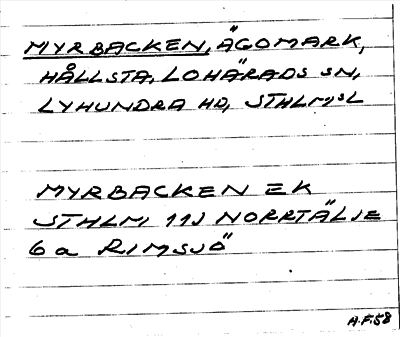 MYRBACKEN, ÄGOMARK,
HÅLLSTA, LOHÄRADS SN,
LYHUNDRA HD, STHLMSL
MYRBACKEN EK
STHLM 11J NORRTÄLJE
6 a RIMSJÖ
A.F.58